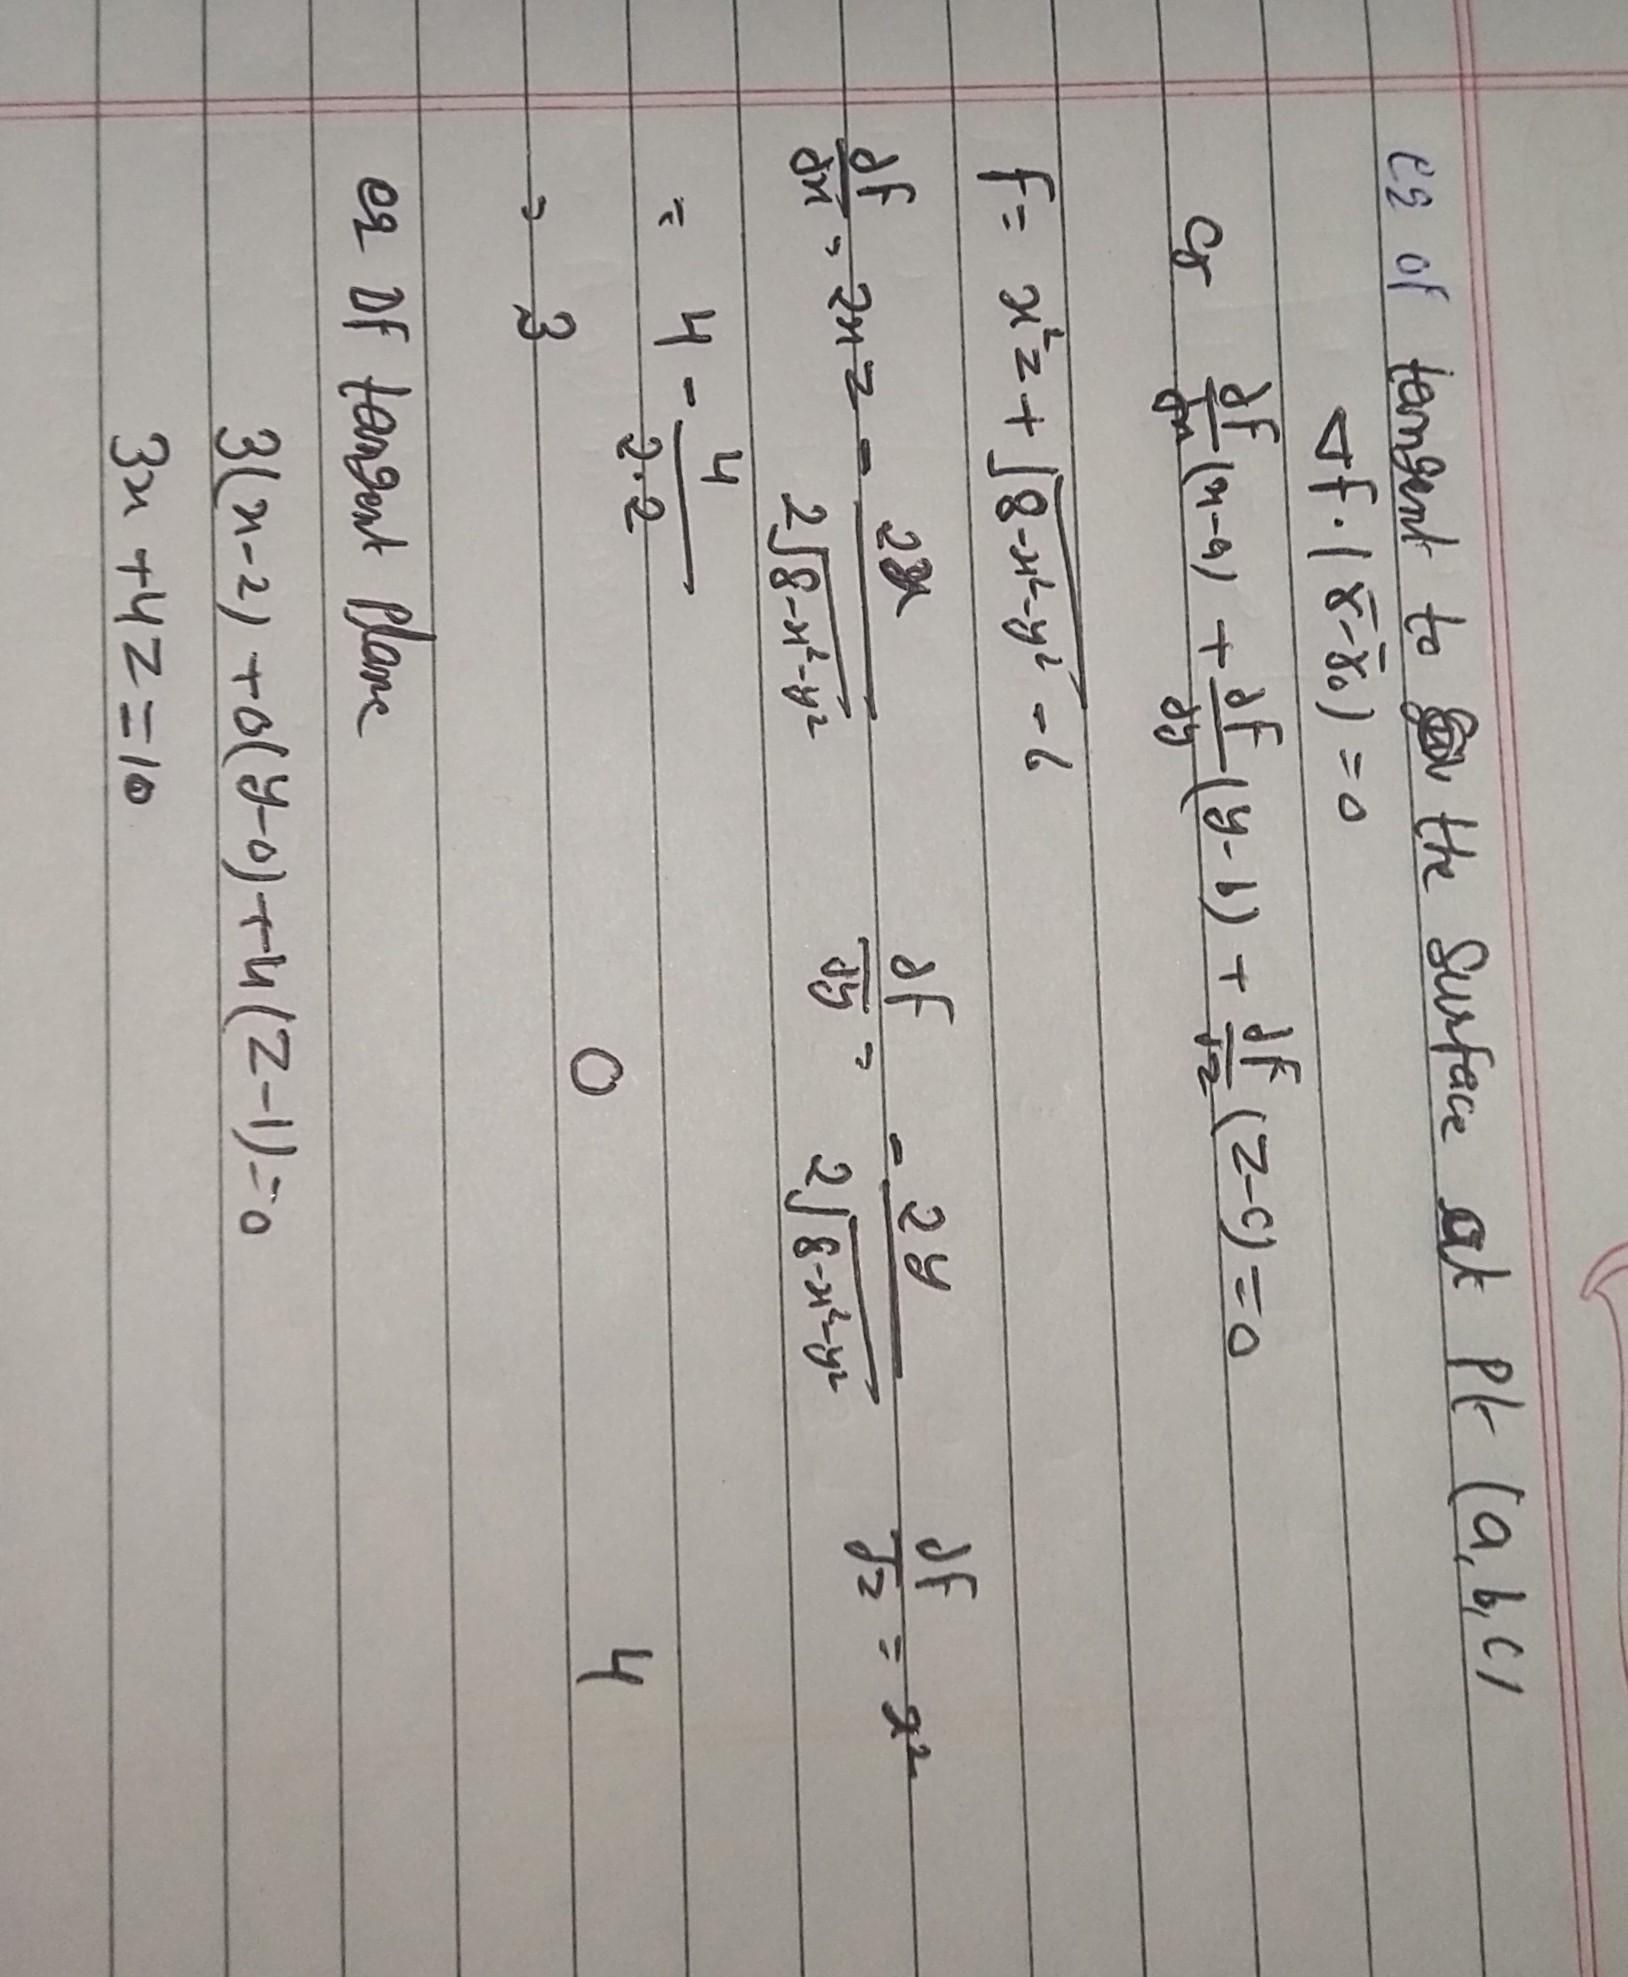 eq of tangent to the Surface at Pt (a, b, c)
∇f · (r̄ - r̄₀) = 0
or ∂f/∂x (x-a) + ∂f/∂y (y-b) + ∂f/∂z (z-c) = 0
f = x²z + √(8-x²-y²) - 6
∂f/∂x = 2xz - 2x/(2√(8-x²-y²)) ∂f/∂y = -2y/(2√(8-x²-y²)) ∂f/∂z = x²
= 4 - 4/(2·2)
= 3 0 4
eq of tangent plane
3(x-2) + 0(y-0) + 4(z-1) = 0
3x + 4z = 10